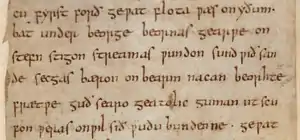 cu. fyrst forð gewat flota wæs on yðum
bat under beorge beornas gearwe on
stefn stigon streamas wundon sund wið san
de secgas bæron on bearm nacan beorhte
frætwe guð searo geatolic guman ut scu
fon weras on wil sið wudu bundenne. gewat